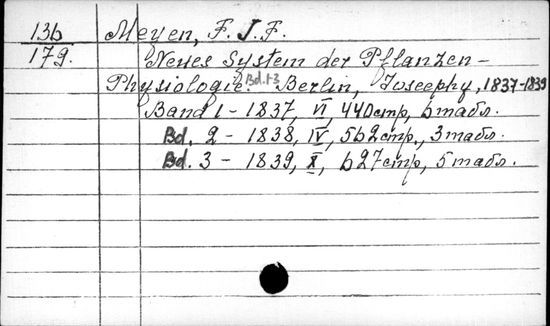 136 Meyen, F. J. F.
179. Neues System der Pflanzen-
Physiologie. Bd. 1-3 Berlin, Joseephy, 1837-1839
Band 1 - 1837, VI, 440 стр, 6 табл.
Bd. 2 - 1838, IV, 562 стр, 3 табл.
Bd. 3 - 1839, X, 627 стр, 5 табл.